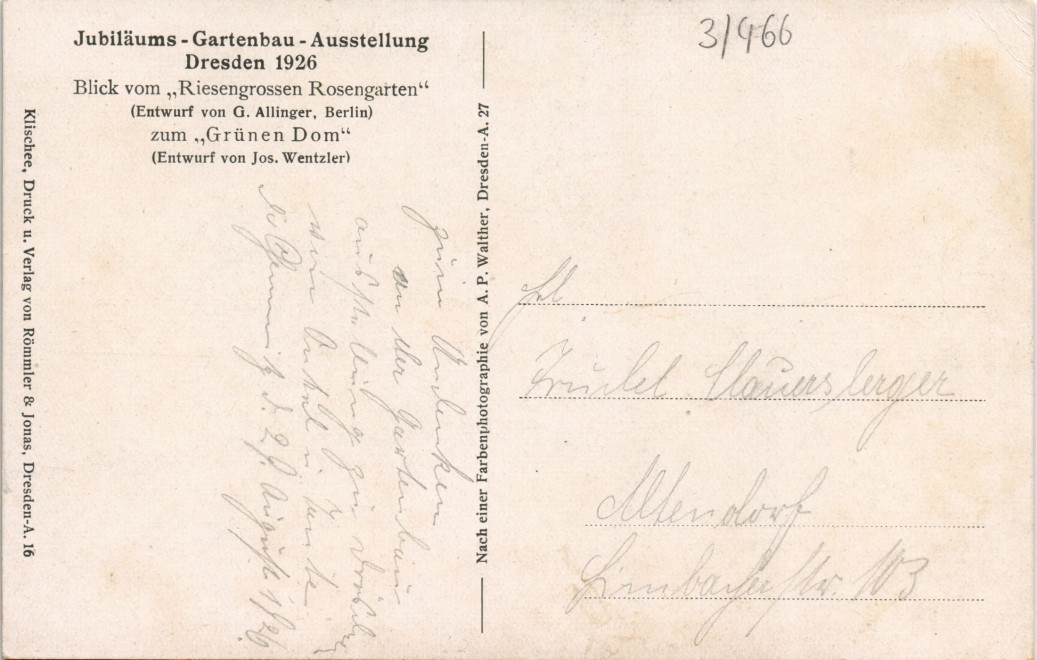 3/466
Jubiläums-Gartenbau-Ausstellung
Dresden 1926
Blick vom „Riesengrossen Rosengarten“
(Entwurf von G. Allinger, Berlin)
zum „Grünen Dom“
(Entwurf von Jos. Wentzler)
Klischee, Druck u. Verlag von Römmler & Jonas, Dresden-A. 16
zum Andenken
an der Gartenbau
ausstellung zu
von Onkel u. Tante
d. 29. August 1926
Nach einer Farbenphotographie von A. P. Walther, Dresden-A. 27
Frl
Trudel Clauersberger
Altendorf
Limbacherstr. 103